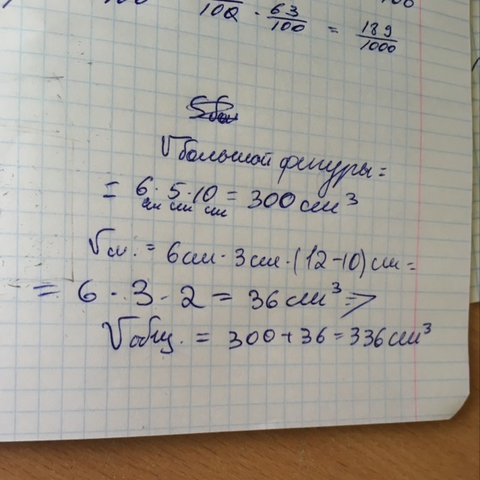 /100 · 63/100 = 189/1000
V большой фигуры =
= 6 см · 5 см · 10 см = 300 см³
V м. = 6 см · 3 см · (12 - 10) см =
= 6 · 3 · 2 = 36 см³ =>
V общ. = 300 + 36 = 336 см³